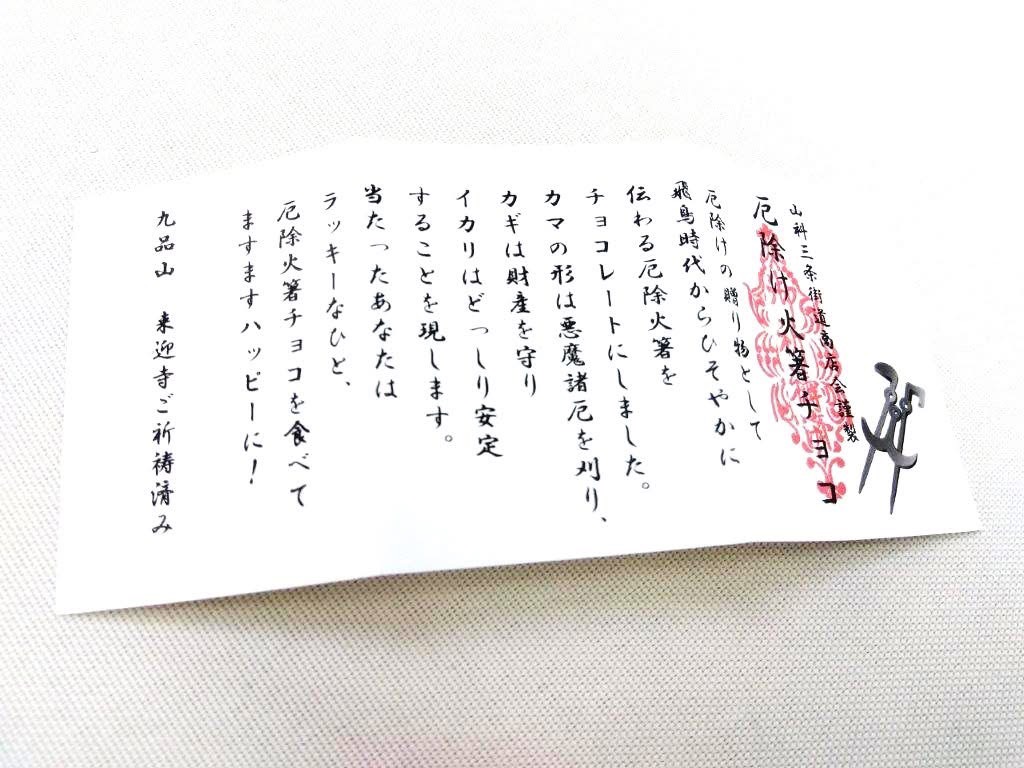 山科三条街道商店会謹製
厄除け火箸チョコ
厄除けの贈り物として
飛鳥時代からひそやかに
伝わる厄除火箸を
チョコレートにしました。
カマの形は悪魔諸厄を刈り、
カギは財産を守り
イカリはどっしり安定
することを現します。
当たったあなたは
ラッキーなひと、
厄除火箸チョコを食べて
ますますハッピーに！
九品山　来迎寺ご祈祷済み